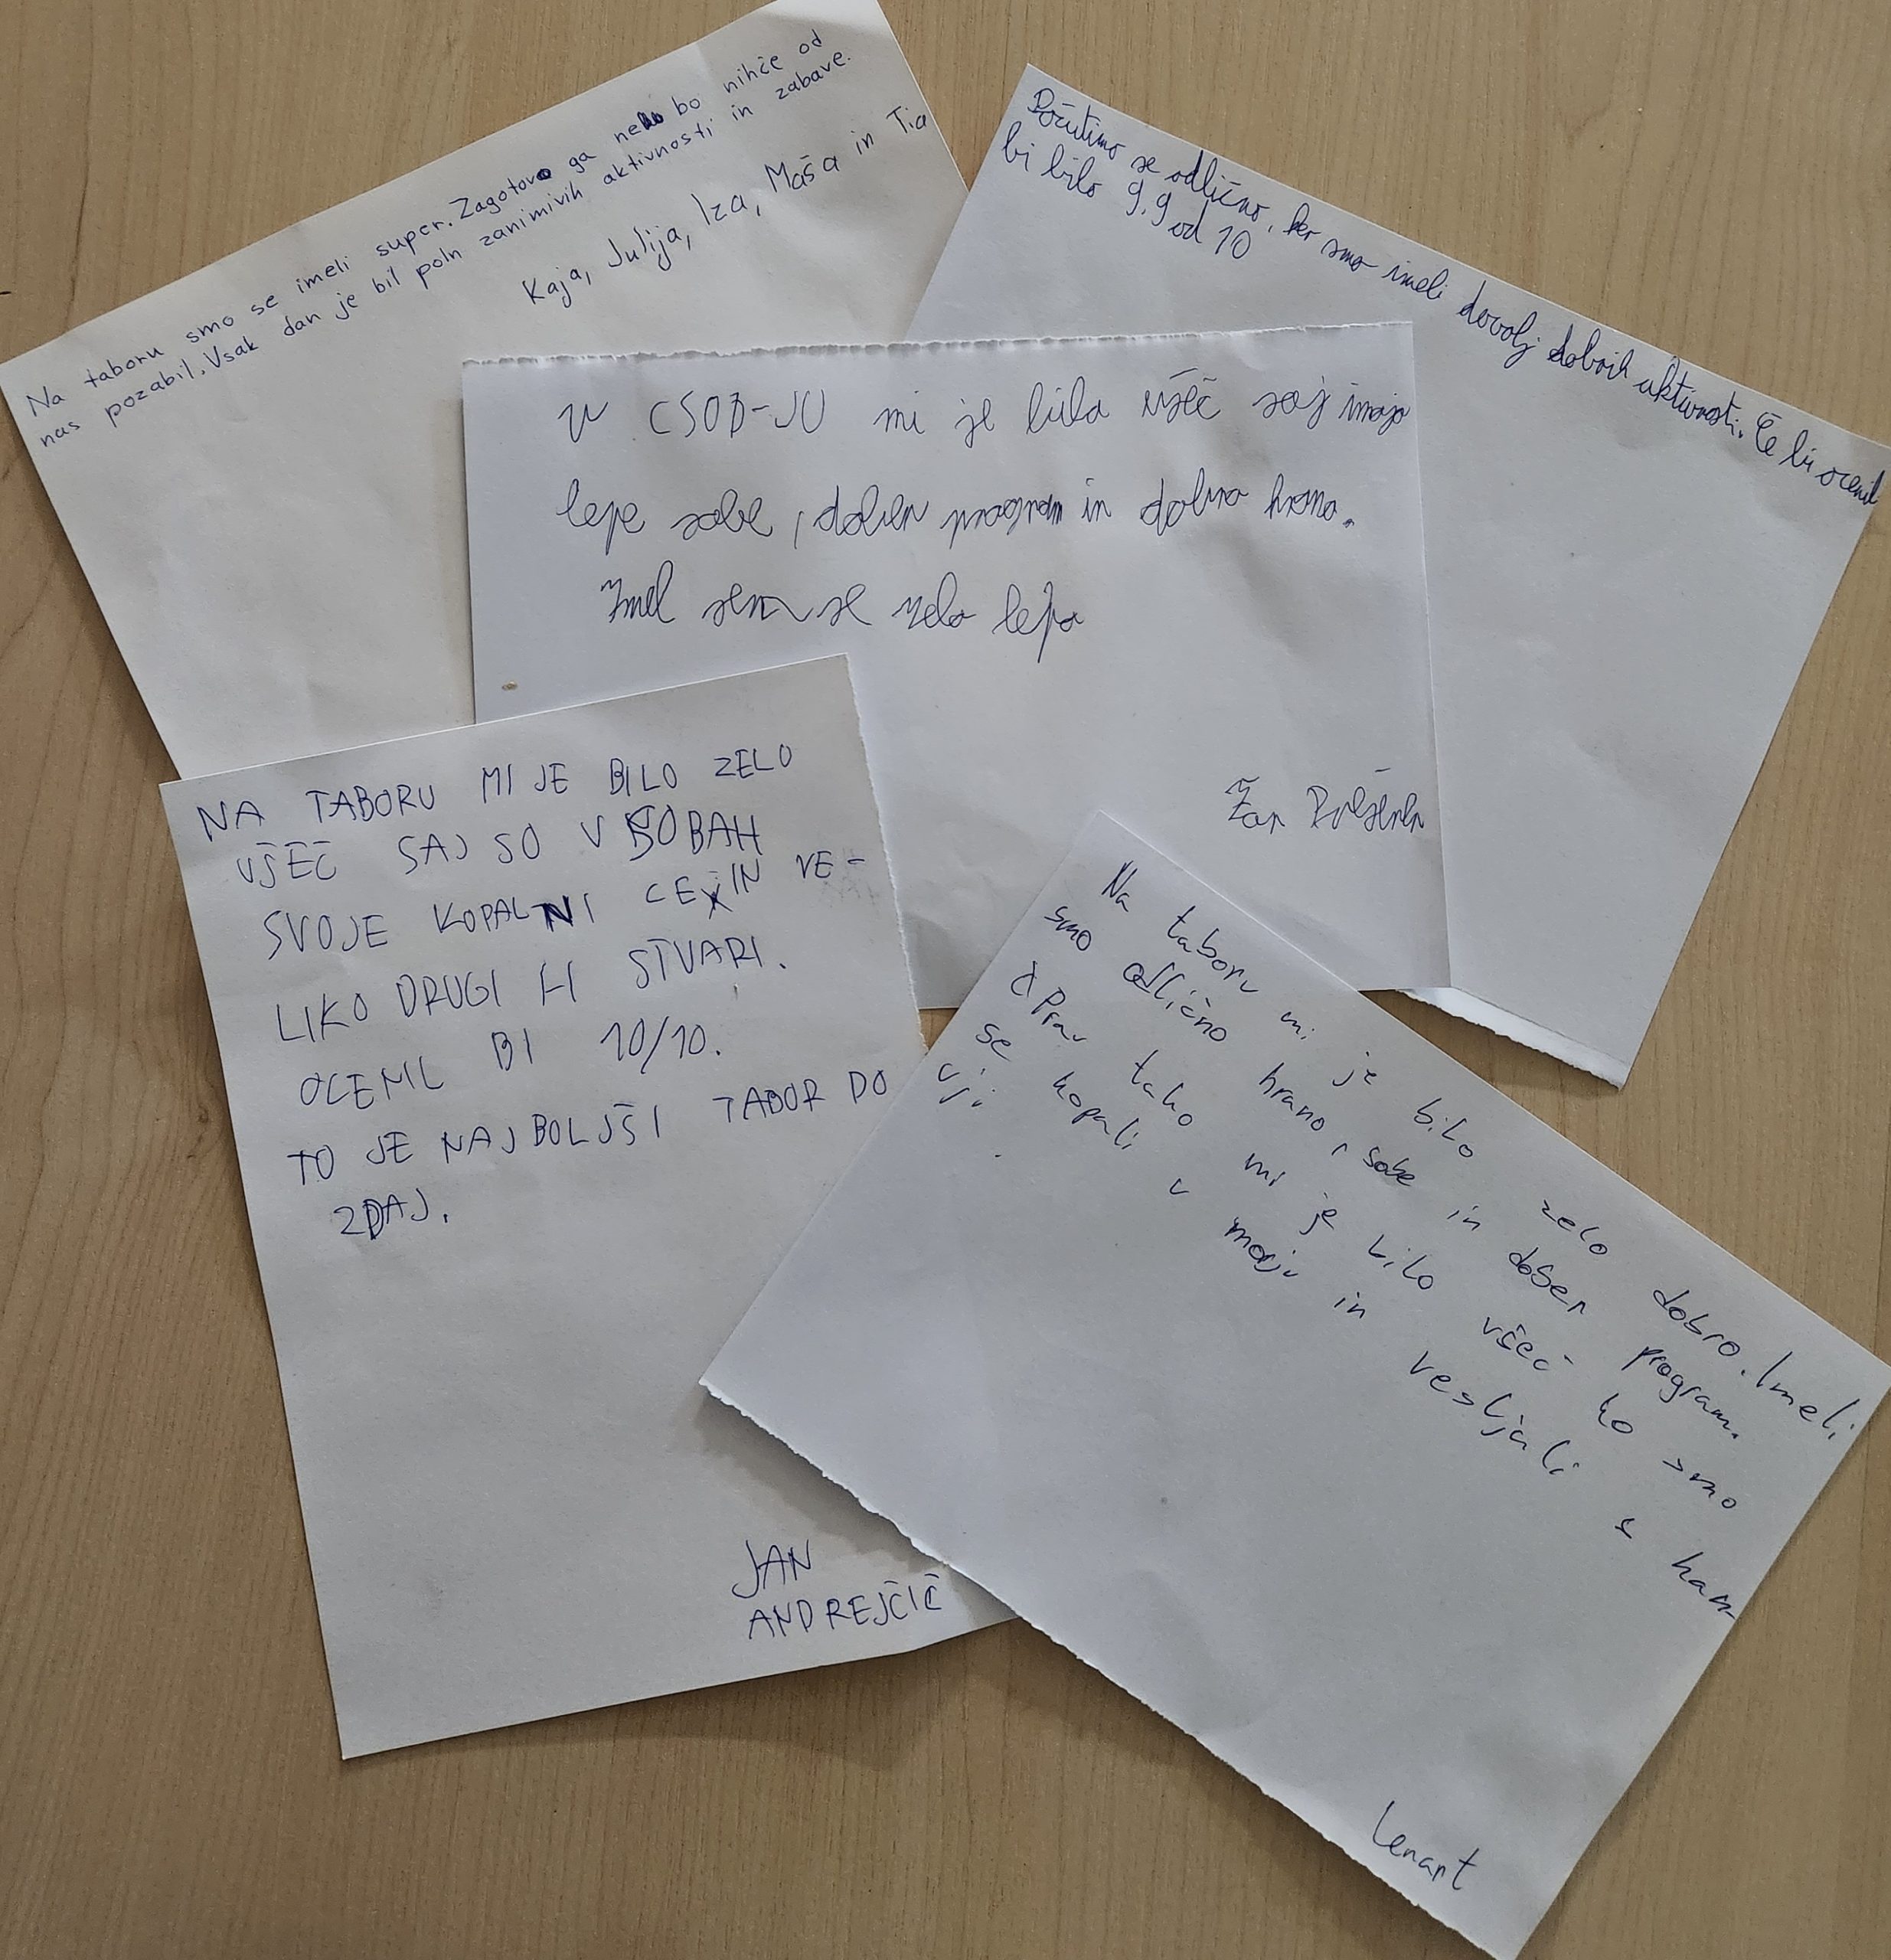 Na taboru smo se imeli super. Zagotovo ga ne bo nihče od
nas pozabil. Vsak dan je bil poln zanimivih aktivnosti in zabave.
Kaja, Julija, Iza, Maša in Tia
Počutimo se odlično, ker smo imeli dovolj dobrih aktivnosti. Če bi ocenil
bi bilo 9,9 od 10
V CŠOD-JU mi je bilo všeč saj imajo
lepe sobe, dober program in dobro hrano.
Imel sem se zelo lepo
Žan
NA TABORU MI JE BILO ZELO
VŠEČ SAJ SO V SOBAH
SVOJE KOPALNI CE IN VE-
LIKO DRUGI H STVARI.
OCENIL BI 10/10.
TO JE NAJBOLJŠI TABOR DO
ZDAJ.
JAN
ANDREJČIČ
Na taboru mi je bilo zelo dobro. Imeli
smo odlično hrano, sobe in dober program.
Prav tako mi je bilo všeč ko smo
se kopali v morju in vesljali s kan-
uji.
Lenart